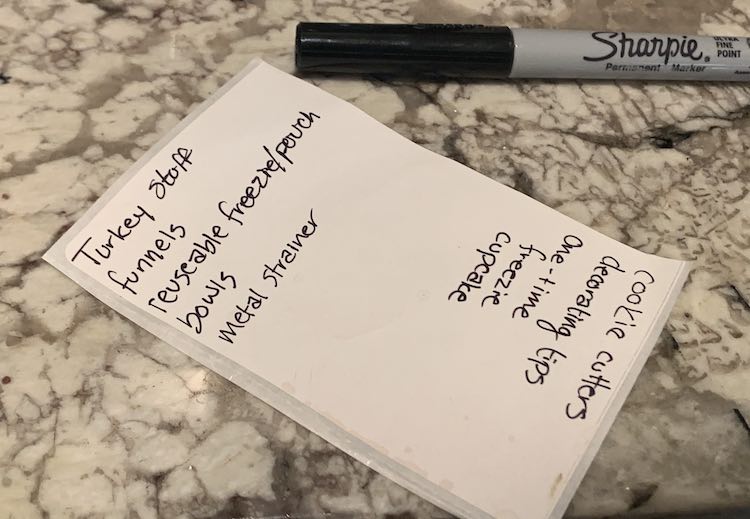 Turkey stuff
funnels
reuseable freezie/pouch
bowls
metal strainer
cookie cutters
decorating tips
one-time
freezie
cupcake
Sharpie
ULTRA
FINE
POINT
Permanent Marker